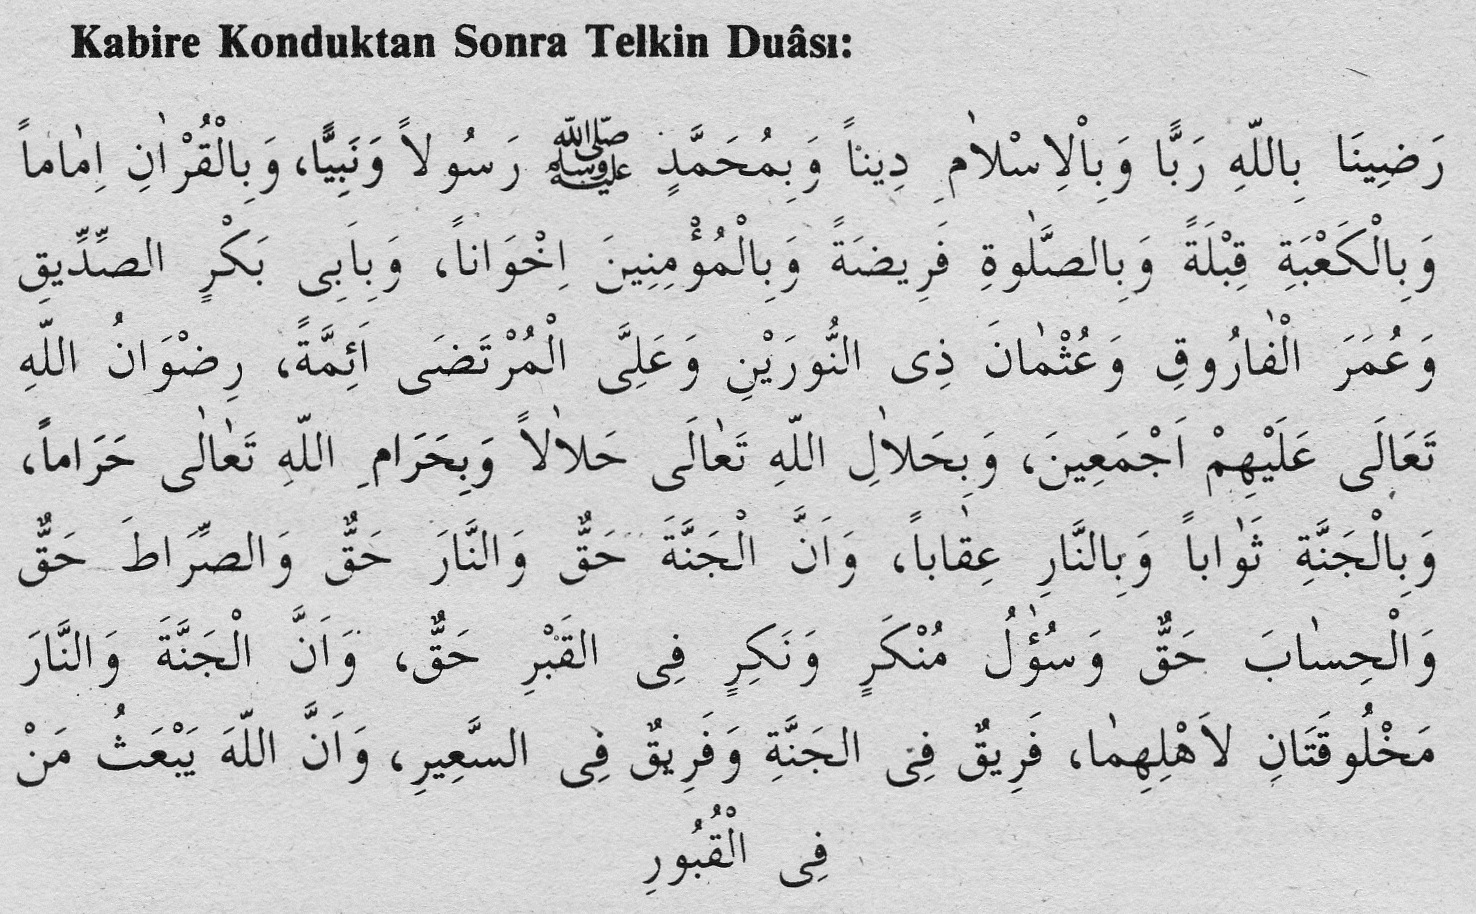 Kabire Konduktan Sonra Telkin Duâsı:
رَضِينَا بِاللّٰهِ رَبًّا وَبِاْلاِسْلاٰمِ دِيناً وَبِمُحَمَّدٍ ﷺ رَسُولاً وَنَبِيًّا، وَبِالْقُرْاٰنِ اِمٰاماً
وَبِالْكَعْبَةِ قِبْلَةً وَبِالصَّلٰوةِ فَرِيضَةً وَبِالْمُؤْمِنِينَ اِخْوَاناً، وَبِاَبِى بَكْرٍ الصِّدِّيقِ
وَعُمَرَ الْفٰارُوقِ وَعُثْمٰانَ ذِى النُّورَيْنِ وَعَلِىَّ الْمُرْتَضَى اَئِمَّةً، رِضْوَانُ اللّٰهِ
تَعَالَى عَلَيْهِمْ اَجْمَعِينَ، وَبِحَلاٰلِ اللّٰهِ تَعٰالَى حَلاٰلاً وَبِحَرَامِ اللّٰهِ تَعٰالٰى حَرَاماً،
وَبِالْجَنَّةِ ثَوٰاباً وَبِالنَّارِ عِقٰاباً، وَاَنَّ الْجَنَّةَ حَقٌّ وَالنَّارَ حَقٌّ وَالصِّرَاطَ حَقٌّ
وَالْحِسٰابَ حَقٌّ وَسُؤٰلُ مُنْكَرٍ وَنَكِرٍ فِى القَبْرِ حَقٌّ، وَاَنَّ الْجَنَّةَ وَالنَّارَ
مَخْلُوقَتَانِ لاَهْلِهِمٰا، فَرِيقٌ فِى الجَنَّةِ وَفَرِيقٌ فِى السَّعِيرِ، وَاَنَّ اللّٰهَ يَبْعَثُ مَنْ
فِى الْقُبُورِ